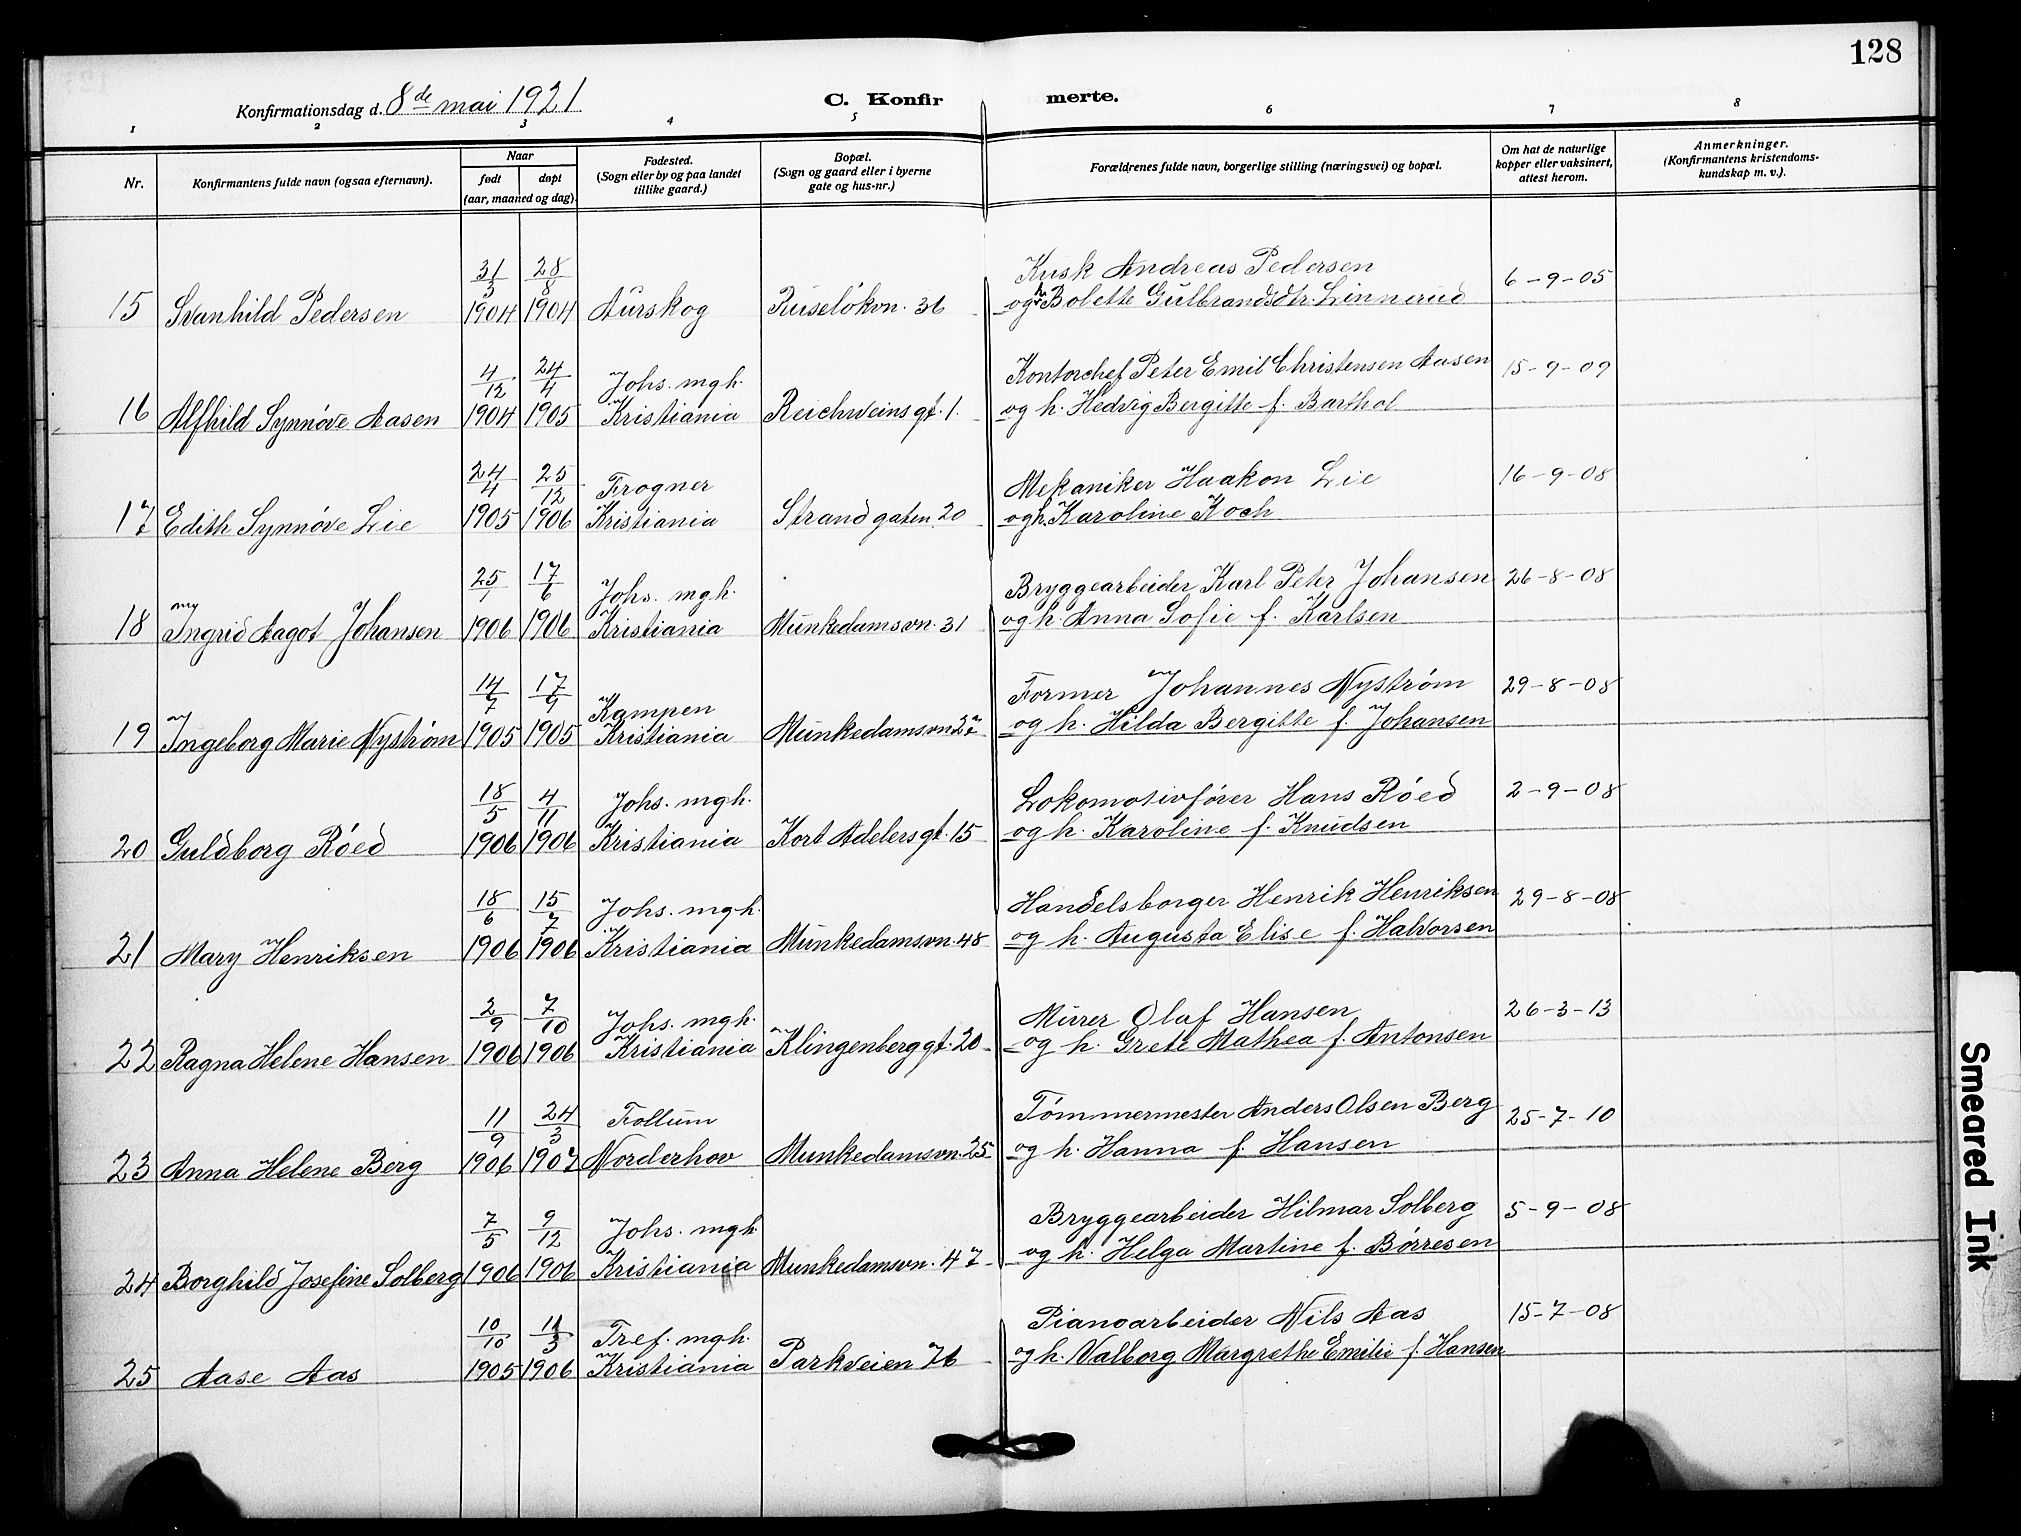 128
Konfirmationsdag d. 8de mai 1921
C. Konfir merte.
1 2 3 4 5 6 7 8
Nr.
Konfirmantens fulde navn (ogsaa efternavn).
Naar
født
døpt
(aar, maaned og dag).
Fødested.
(Sogn eller by og paa landet
tillike gaard.)
Bopæl.
(Sogn og gaard eller i byerne
gate og hus-nr.)
Forældrenes fulde navn, borgerlige stilling (næringsvei) og bopæl.
Om hat de naturlige
kopper eller vaksinert,
attest herom.
Anmerkninger.
(Konfirmantens kristendoms-
kundskap m. v.).
31/3 28/8 Kusk Andreas Pedersen 6-9-05
15 Svanhild Pedersen 1904 1904 Aurskog Ruseløkvn. 36 og h. Bolette Gulbrandsdtr. Linnerud
4/12 24/4 Johs. mgh. Kontorchef Peter Emil Christensen Aasen 15-9-09
16 Alfhild Synnøve Aasen 1904 1905 Kristiania Reichweinsgt. 1. og h. Hedvig Bergitte f. Barthol
24/4 25/12 Frogner Mekaniker Haakon Lie 16-9-08
17 Edith Synnøve Lie 1905 1906 Kristiania Strandgaten 20 og h. Karoline Koch
25/1 17/6 Johs. mgh. Bryggearbeider Karl Peter Johansen 26-8-08
18 Ingrid Aagot Johansen 1906 1906 Kristiania Munkedamsvn. 31 og h. Anna Sofie f. Karlsen
14/7 17/9 Kampen Former Johannes Nystrøm 29-8-08
19 Ingeborg Marie Nystrøm 1905 1905 Kristiania Munkedamsvn 27 og h. Hilda Bergitte f. Johansen
18/5 4/11 Johs. mgh. Lokomotivfører Hans Røed 2-9-08
20 Guldborg Røed 1906 1906 Kristiania Kort Adelersgt. 15 og h. Karoline f. Knudsen
18/6 15/7 Johs. mgh. Handelsborger Henrik Henriksen 29-8-08
21 Mary Henriksen 1906 1906 Kristiania Munkedamsvn. 48 og h. Augusta Elise f. Halvorsen
2/9 7/10 Johs. mgh. Murer Olaf Hansen 26-3-13
22 Ragna Helene Hansen 1906 1906 Kristiania Klingenberggt. 20 og h. Grete Mathea f. Antonsen
11/9 24/3 Follum Tømmermester Anders Olsen Berg 25-7-10
23 Anna Helene Berg 1906 1907 Norderhov Munkedamsvn. 25 og h. Hanna f. Hansen
7/5 9/12 Johs. mgh. Bryggearbeider Hilmar Solberg 5-9-08
24 Borghild Josefine Solberg 1906 1906 Kristiania Munkedamsvn. 47 og h. Helga Martine f. Børresen
10/10 11/3 Tref. mgh. Pianoarbeider Nils Aas 15-7-08
25 Aase Aas 1905 1906 Kristiania Parkveien 76 og h. Valborg Margrethe Emilie f. Hansen
Smeared Ink